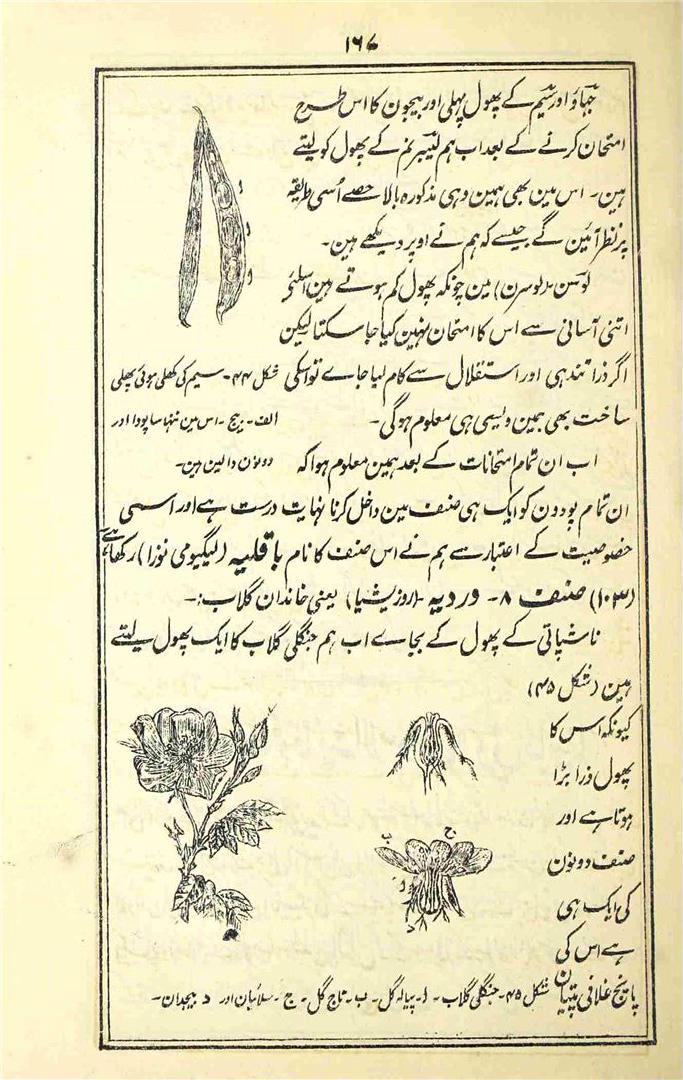 ۱۶۷
جھاؤ اور سیم کے پھول پہلی اور بیجون کا اس طرح
امتحان کرنے کے بعد اب ہم لیبرنم کے پھول کو لیتے
ہین۔ اس مین بھی ہمین وہی مذکورہ بالا حصے اُسی طریقہ
پر نظر آئین گے جیسے کہ ہم نے اوپر دیکھے ہین۔
لوسن (لوسرن) مین چونکہ پھول کم ہوتے ہین اسلئے
اتنی آسانی سے اس کا امتحان نہین کیا جا سکتا لیکن
اگر ذرا تندہی اور استقلال سے کام لیا جاے تو اسکی
ساخت بھی ہمین ویسی ہی معلوم ہوگی۔
شکل ۴۴۔ سیم کی کھلی ہوئی پھلی
الف۔ بیج۔ اس مین ننھا سا پودا اور
دونون دالین ہین۔
اب ان تمام امتحانات کے بعد ہمین معلوم ہوا کہ
ان تمام پودون کو ایک ہی صنف مین داخل کرنا نہایت درست ہے اور اسی
خصوصیت کے اعتبار سے ہم نے اس صنف کا نام باقلیہ (لیگیومی نوزا) رکھا ہے
(۱۰۳) صنف ۸۔ وردیہ۔ (روزیشیا) یعنی خاندان گلاب:۔
ناشپاتی کے پھول کے بجاے اب ہم جنگلی گلاب کا ایک پھول لیتے
ہین (شکل ۴۵)
کیونکہ اس کا
پھول ذرا بڑا
ہوتا ہے اور
صنف دونون
کی ایک ہی
ہے اس کی
پانچ غلافی پتیان
ب
ح
ا
د
شکل ۴۵۔ جنگلی گلاب۔ ا۔ پیالہ گل۔ ب۔ تاج گل۔ ج۔ سلائیان اور د۔ بیجدان۔